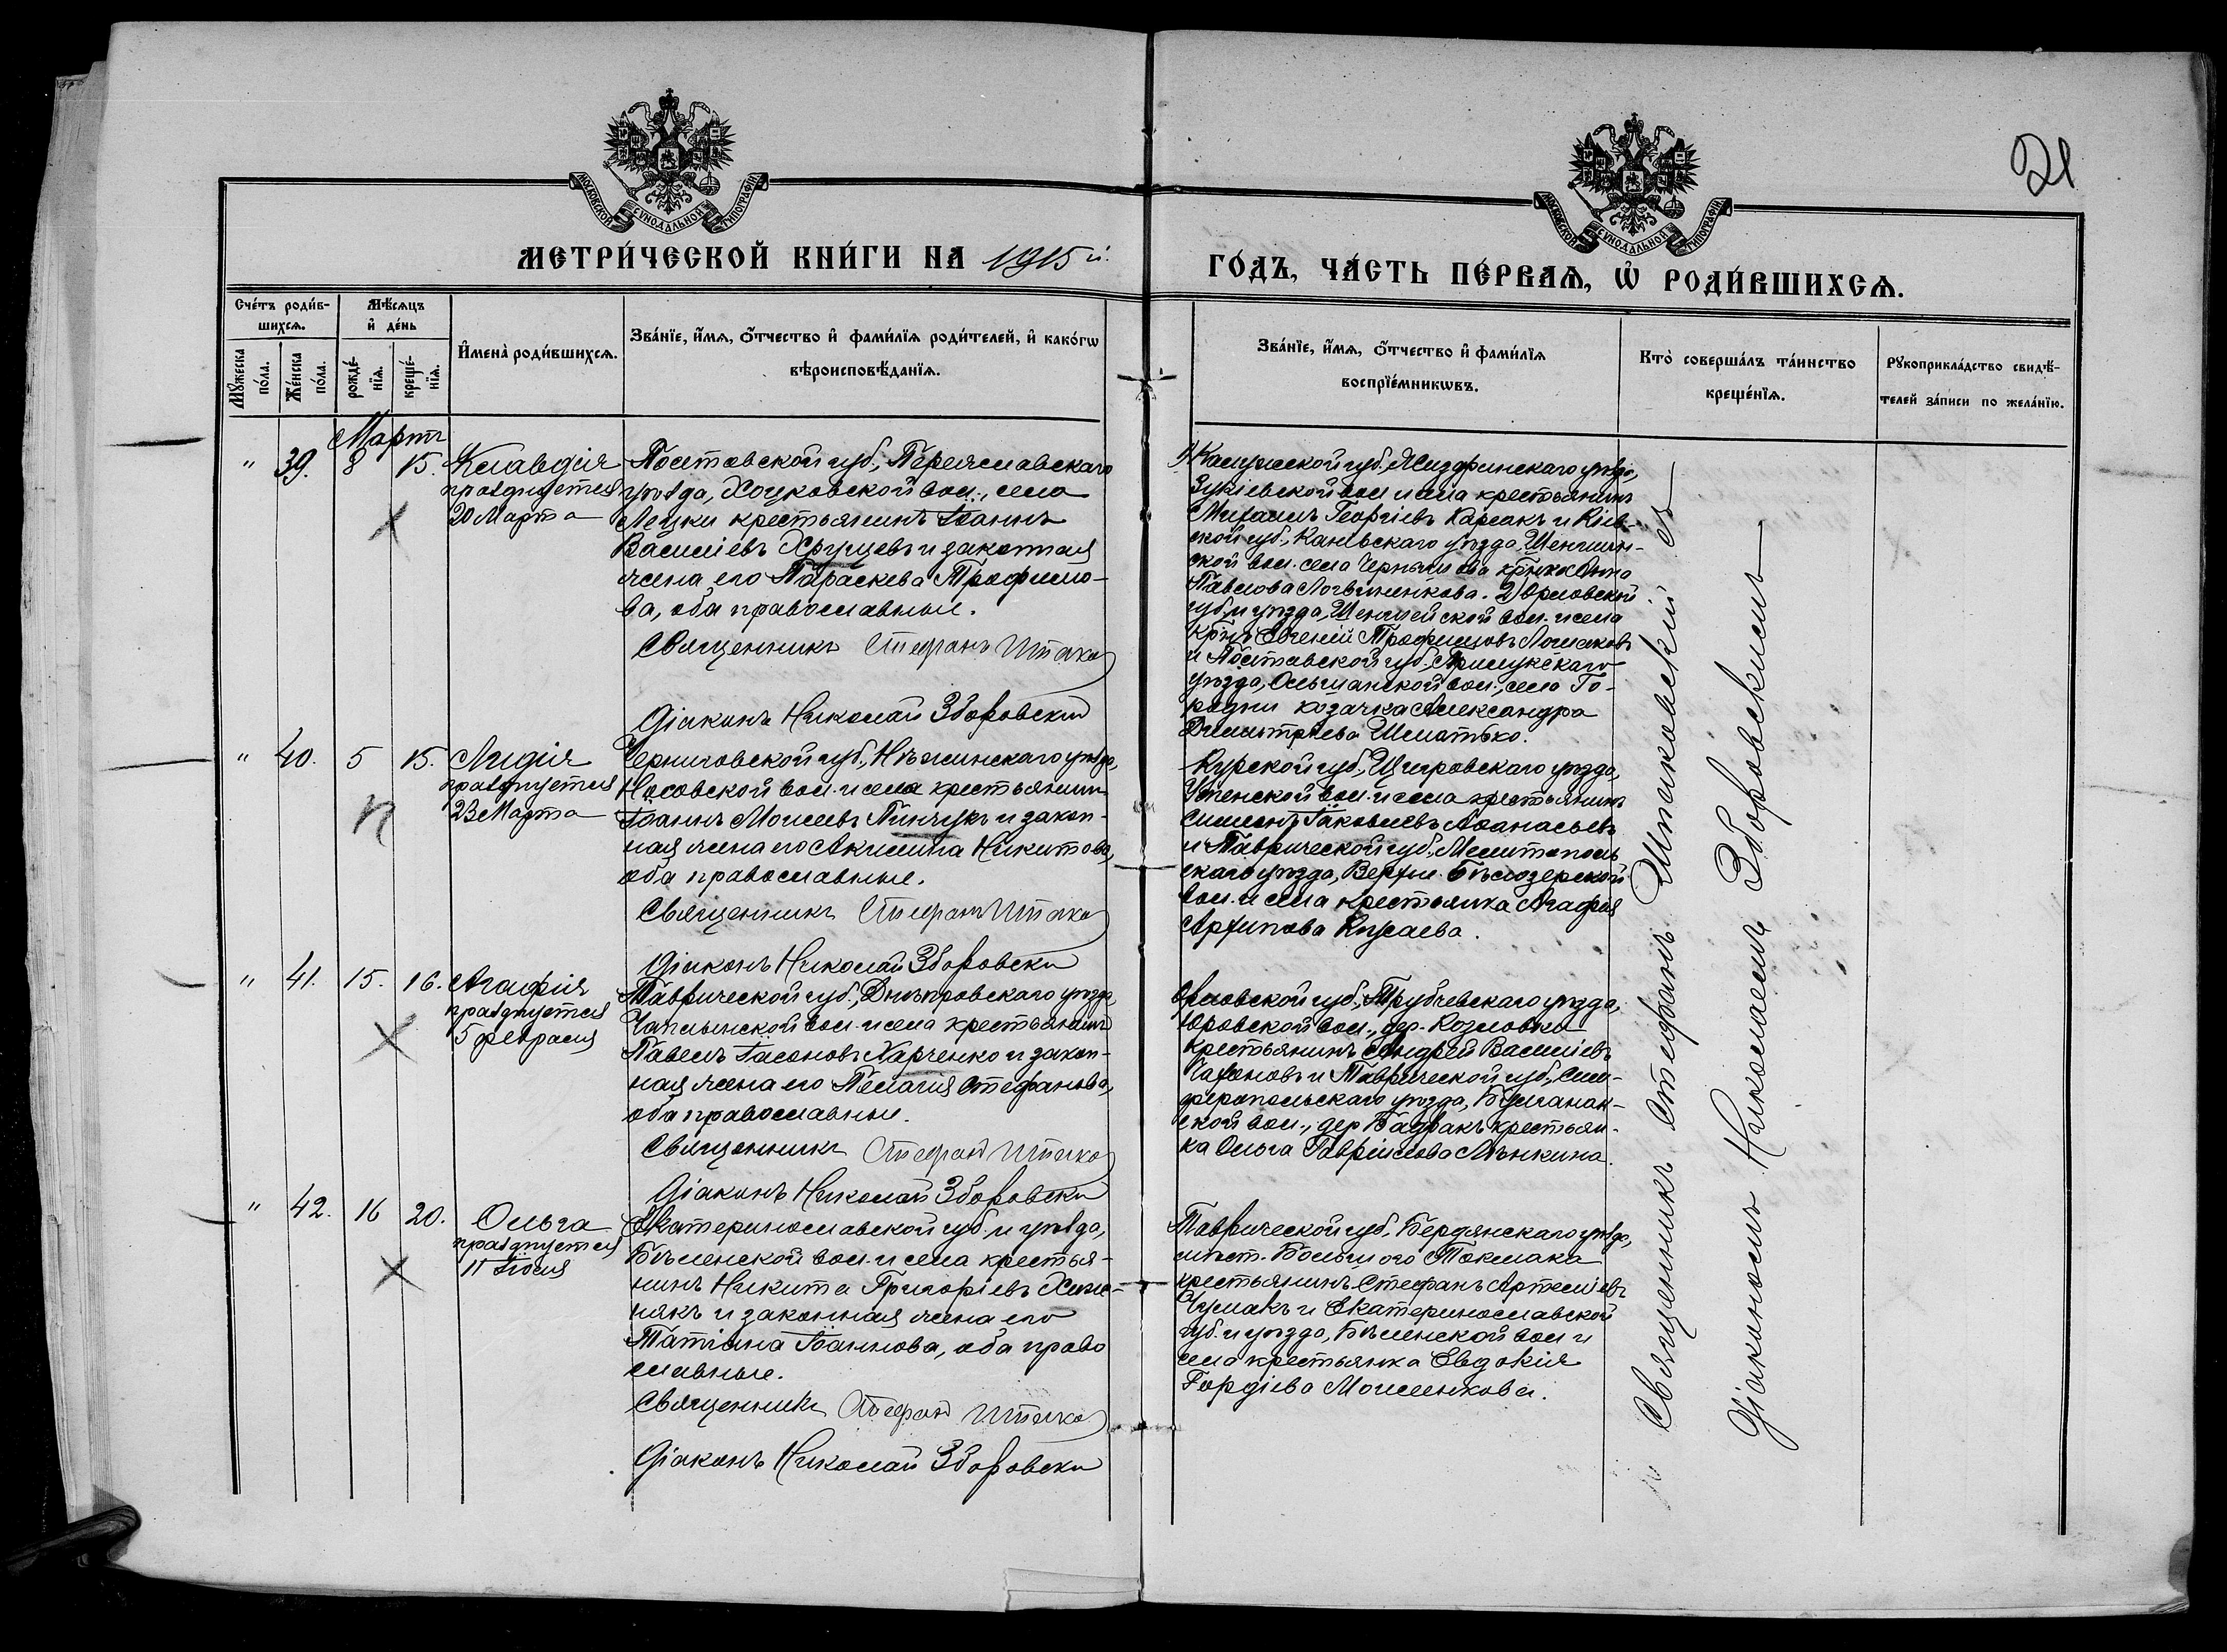 21
МОСКОВСКОЙ СѴНОДАЛЬНОЙ ТИПОГРАФІИ
МОСКОВСКОЙ СѴНОДАЛЬНОЙ ТИПОГРАФІИ
МЕТРИ́ЧЕСКОЙ КНИ́ГИ НА 1915 й.
ГО́ДЪ, ЧА́СТЬ ПЕ́РВАѦ, Ѡ҆ РОДИ́ВШИХСѦ.
Сче́тъ роди́в-
шихсѧ.
Мꙋ́жеска
по́ла.
Же́нска
по́ла.
Мѣ́сѧцъ
и҆ де́нь
рожде́-
нїѧ.
креще́-
нїѧ.
И҆мена̀ роди́вшихсѧ.
Зва́нїе, и҆́мѧ, ѻ҆́тчество и҆ фами́лїѧ роди́телей, и҆ како́гѡ
вѣроисповѣ́данїѧ.
Зва́нїе, и҆́мѧ, ѻ҆́тчество и҆ фами́лїѧ
воспрїе́мникѡвъ.
Кто̀ соверша́лъ та́инство
креще́нїѧ.
Рꙋкоприкла́дство свидѣ́-
телей за́писи по жела́нїю.
Мартъ
" 39. 8 15. Клавдія
празднуется
20 Марта
Полтавской губ., Переяславскаго
уѣзда, Хоцковской вол., села
Лецки крестьянинъ Іоаннъ
Василіевъ Хрущевъ и законная
жена его Параскева Трофимо-
ва, оба православные.
Священникъ Стефанъ Шпако
Діаконъ Николай Зборовский
1) Калужской губ. Жиздринскаго уѣзда,
Зикіевской вол и села крестьянинъ
Михаилъ Георгіевъ Карсакъ и Кіев-
ской губ., Каневскаго уѣзда,
ской вол. села кр-нка Анна
Павлова Логвиненкова. 2) Орловской
губ. и уѣзда, вол. и села
кр-нъ Евгеній Трофимовъ
и Полтавской губ., Прилукскаго
уѣзда, Ольшанской вол., села Го-
родни козачка Александра
Димитріева Шматько.
" 40. 5 15. Лидія
празднуется
23 Марта
Черниговской губ., Нѣжинскаго уѣзда,
Носовской вол. и села крестьянинъ
Іоаннъ Моисеевъ Пинчукъ и закон-
ная жена его Акилина Никитова,
оба православные.
Священникъ Стефанъ Шпако
Діаконъ Николай Зборовски
Курской губ., Щигровскаго уѣзда,
Успенской вол. и села крестьянинъ
Симеонъ Іаковлевъ Аѳанасьевъ
и Таврической губ., Мелитополь
скаго уѣзда, Верхн. Бѣлозерской
вол. и села крестьянка Агафія
Архипова Кусаева.
" 41. 15. 16. Агафія
празднуется
5 февраля
Таврической губ., Днѣпровскаго уѣзда,
Чаплынской вол. и села крестьянинъ
Павелъ Іасоновъ Харченко и закон-
ная жена его Пелагія Стефанова,
оба православные.
Священникъ Стефан Шпако
Діаконъ Николай Зборовски
Орловской губ., Трубчевскаго уѣзда,
Юровской вол., дер. Козловка
крестьянинъ Андрей Василіевъ
и Таврической губ., Сим-
феропольскаго уѣзда, Булганак-
ской вол., дер Бадракъ крестьян-
ка Ольга Гавріилова Лѣнкина.
" 42. 16 20. Ольга
празднуется
11 Іюля
Екатеринославской губ. и уѣзда,
Бѣленской вол. и села крестья-
нинъ Никита Григоріевъ Хиж-
някъ и законная жена его
Татіана Іоаннова, оба право
славные.
Священникъ Стефан Шпако
Діаконъ Николай Зборовски
Таврической губ., Бердянскаго уѣзда,
мѣст. Большого Токмака
крестьянинъ Стефанъ Артеміевъ
Чумакъ и Екатеринославской
губ. и уѣзда, Бѣленской вол и
села крестьянка Евдокія
Гордіева Моисеенкова.
Священникъ Стефанъ Шпаковскій съ
Діакономъ Николаемъ Зборовскимъ